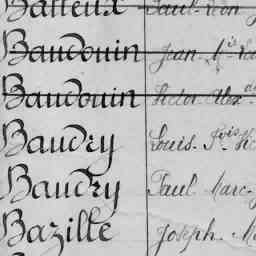 Batteux Paul Léon
Baudouin Jean Fçis
Baudouin Victor Alexdre
Baudry Louis Fçis
Baudry Paul Marc
Bazille Joseph